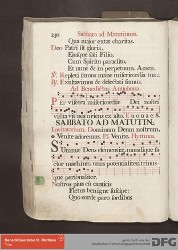 230 Sabbato ad Matutinum.
Qua major extat charitas.
Deo Patri sit gloria,
Ejusque soli Filio,
Cum Spiritu paraclito,
Et nunc & in perpetuum. Amen.
℣. Repleti sumus mane misericordia tua.
℟. Exultavimus & delectati sumus.
Ad Benedictus Antiphona.
Per viscera misericordiae Dei nostri
visita vit nos oriens ex alto. E u o u a e
SABBATO AD MATUTIN.
Invitatorium. Dominum Deum nostrum,
Venite adoremus. Ps. Venite. Hymnus.
Summae Deus clementiae, mundique fa-
ctor machinae, unus potentialiter, trinus-
que personaliter.
Nostros pius cum canticis
Fletus benigne suscipe:
Quo corde puro sordibus
Benediktinerabtei St. Matthias
Trier
Gefördert durch die
DFG